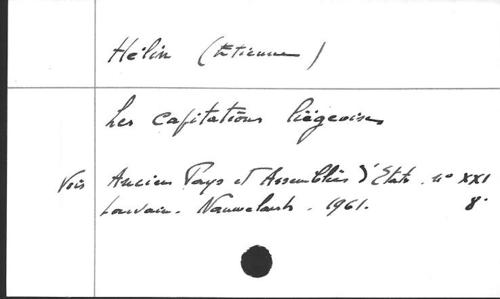 Hélin (Etienne)
Les capitations liégeoises
Voir Anciens Pays et Assemblées d'Etats. n° XXI
Louvain. Nauwelaerts. 1961. 8°